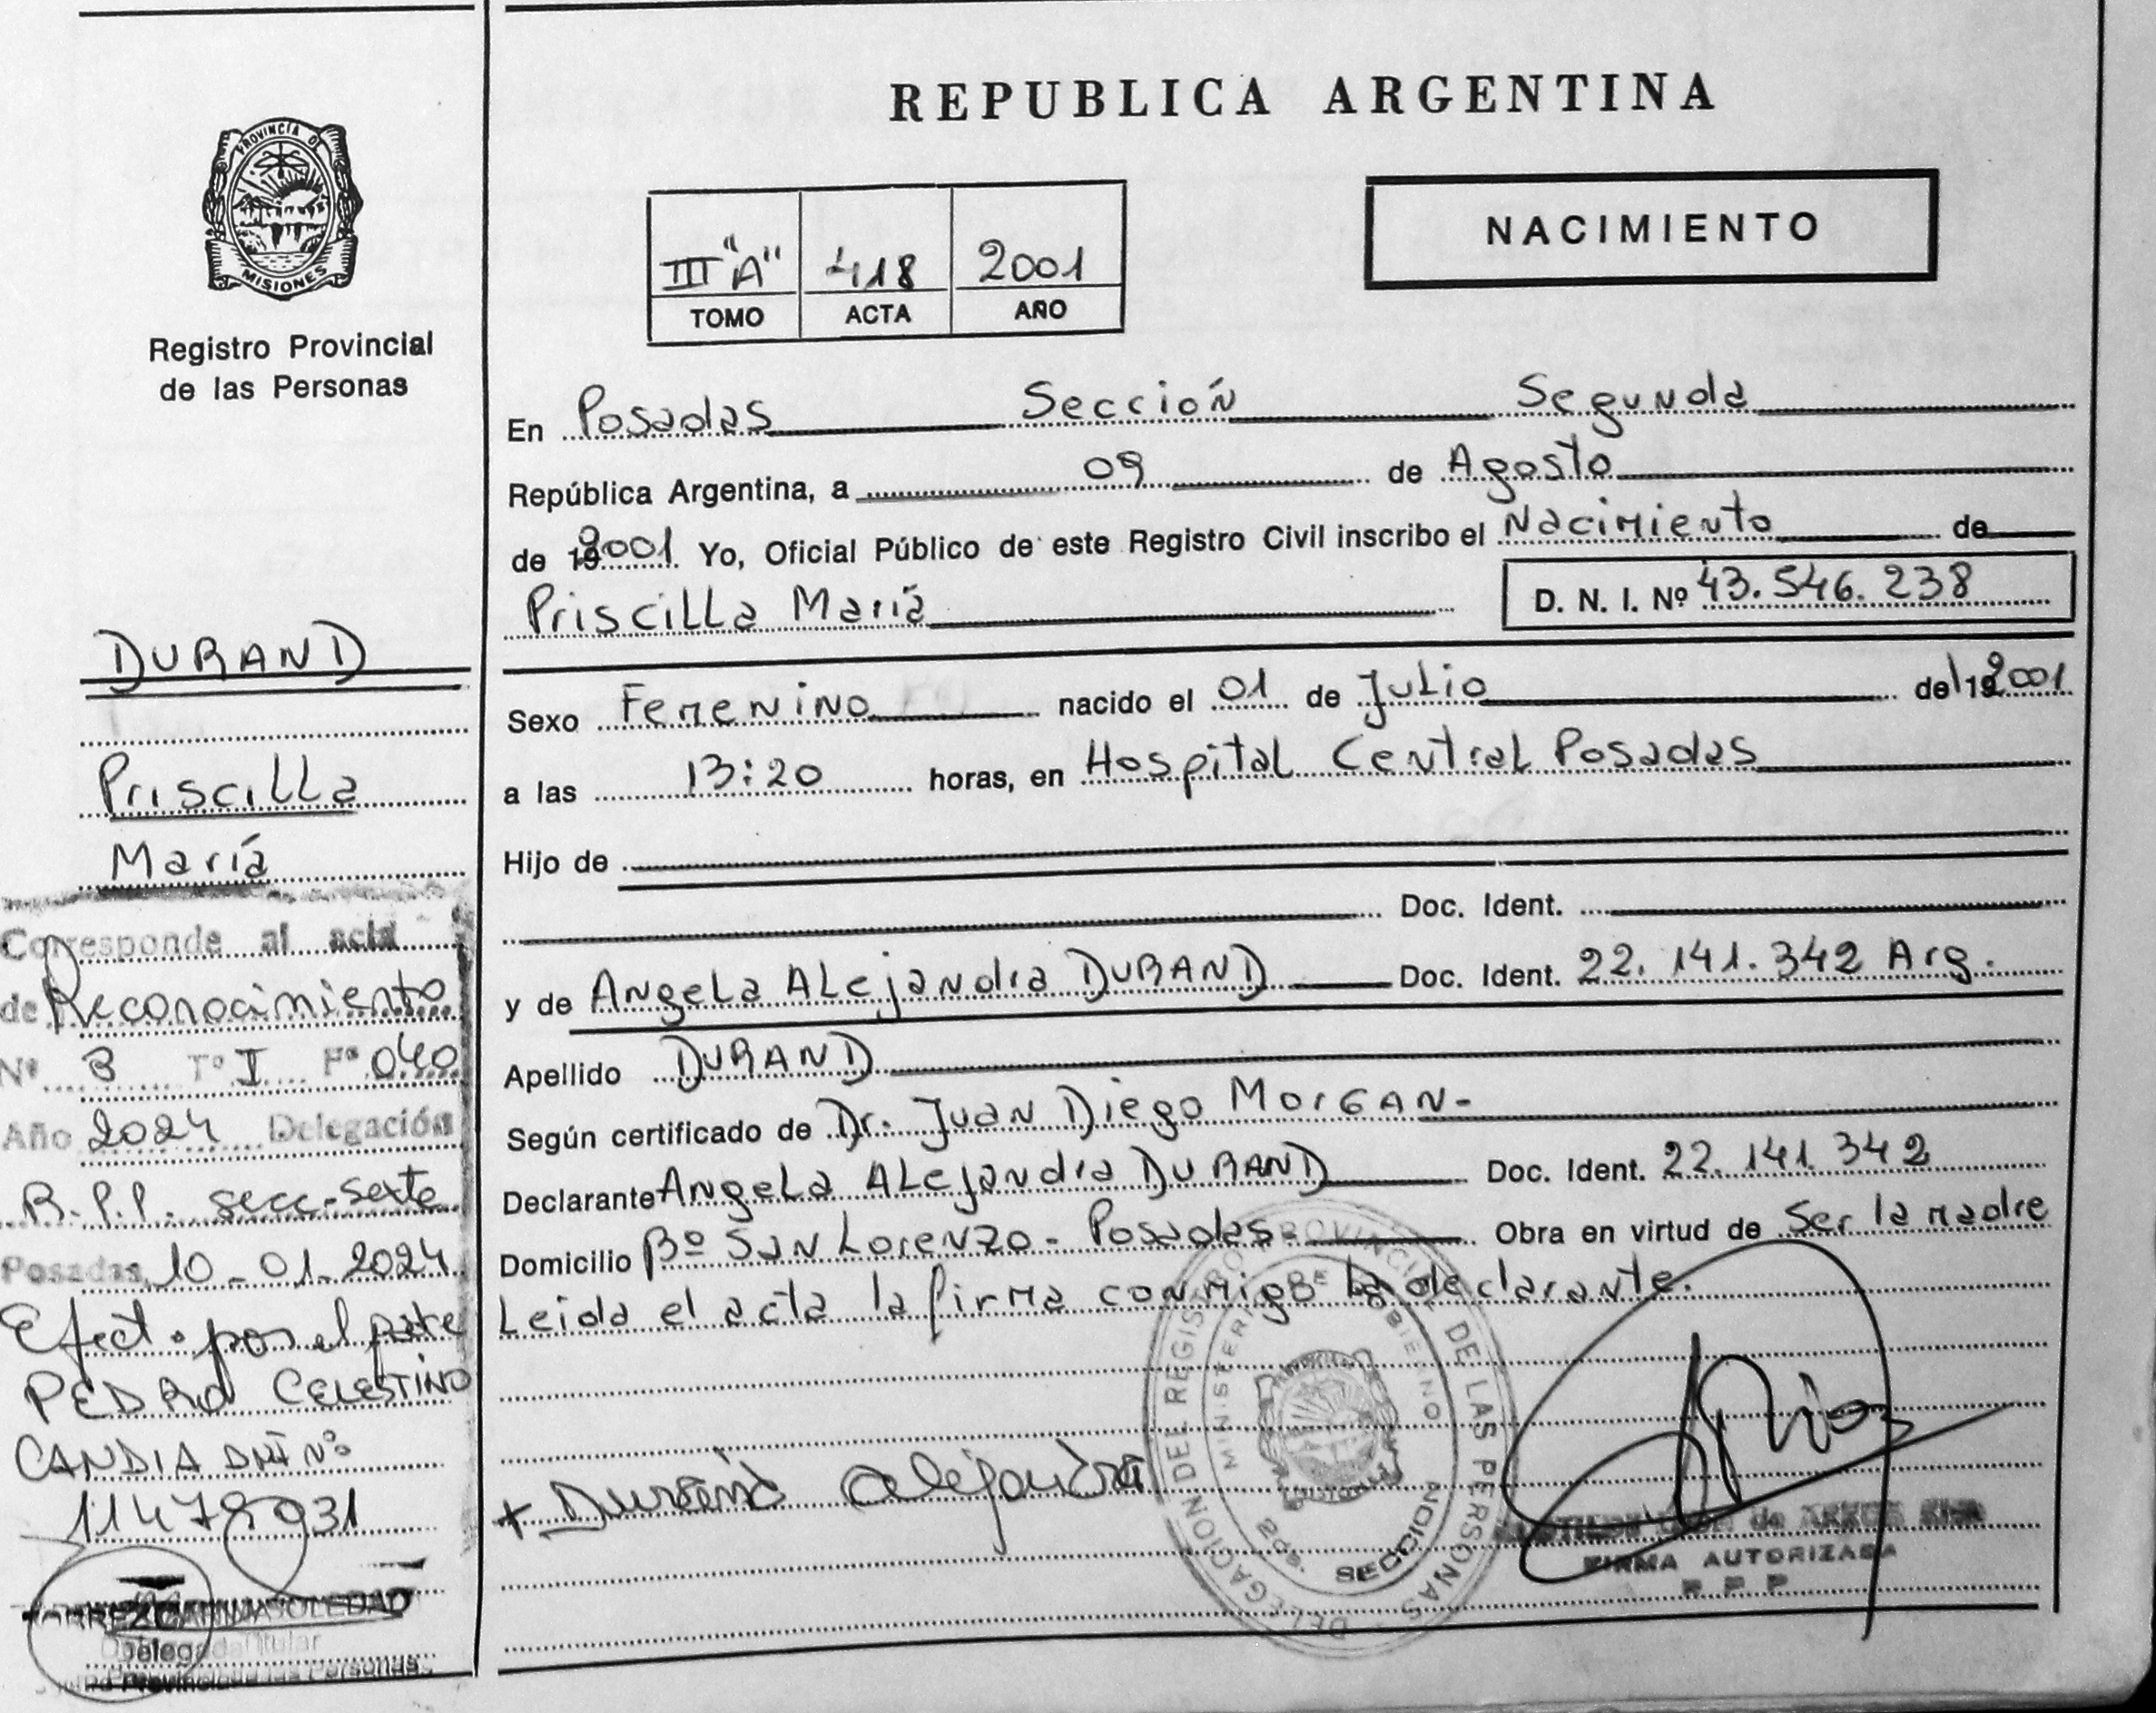 REPUBLICA ARGENTINA
PROVINCIA DE
MISIONES
Registro Provincial
de las Personas
NACIMIENTO
III "A" 418 2001
TOMO ACTA AÑO
En Posadas Sección Segunda
República Argentina, a 09 de Agosto
de 192001 Yo, Oficial Público de este Registro Civil inscribo el Nacimiento de
Priscilla María D. N. I. Nº 43.546.238
Sexo Femenino nacido el 01 de Julio del 192001
a las 13:20 horas, en Hospital Central Posadas
Hijo de
Doc. Ident.
y de Angela Alejandra DURAND Doc. Ident. 22.141.342 Arg.
Apellido DURAND
Según certificado de Dr. Juan Diego Morgan-
Declarante Angela Alejandra DURAND Doc. Ident. 22.141.342
Domicilio Bº San Lorenzo - Posadas Obra en virtud de Ser la madre
Leida el acta la firma conmigo la declarante.
+ Durand Alejandra
DELEGACION DEL REGISTRO PROVINCIAL DE LAS PERSONAS
MINISTERIO DE GOBIERNO
SECCION 2da.
FIRMA AUTORIZADA
R P P
DURAND
Priscilla
María
Corresponde al acta
de Reconocimiento
Nº 3 Tº I Fº 040
Año 2024 Delegación
R.P.P. secc. sexta
Posadas, 10-01-2024
Efect. por el padre
PEDRO CELESTINO
CANDIA DNI Nº
11478931
SOLEDAD
Delegada Titular
Provincial de las Personas